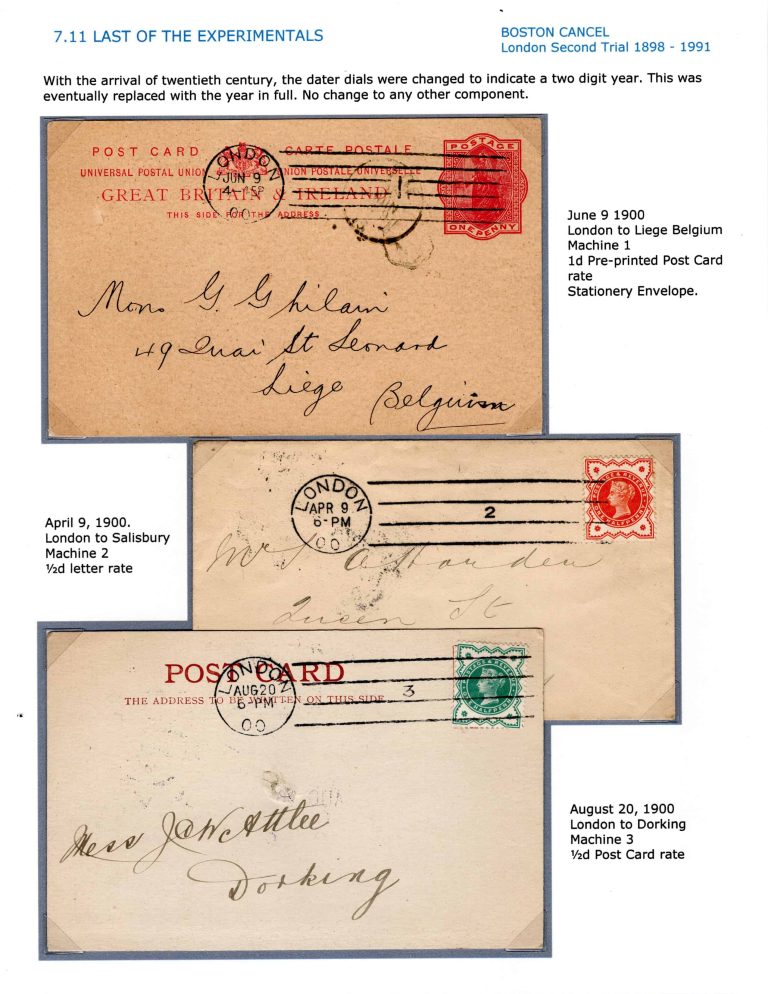 7.11 LAST OF THE EXPERIMENTALS
BOSTON CANCEL
London Second Trial 1898 - 1991
With the arrival of twentieth century, the dater dials were changed to indicate a two digit year. This was
eventually replaced with the year in full. No change to any other component.
POST CARD CARTE POSTALE
UNIVERSAL POSTAL UNION UNION POSTALE UNIVERSELLE
GREAT BRITAIN & IRELAND
THIS SIDE FOR THE ADDRESS
POSTAGE
ONE PENNY
LONDON
JUN 9
00
1
Mons G. Ghilain
49 Quai St Leonard
Liège
Belgium
June 9 1900
London to Liege Belgium
Machine 1
1d Pre-printed Post Card
rate
Stationery Envelope.
LONDON
APR 9
6-PM
00
2
POSTAGE & REVENUE
HALFPENNY
Queen St
April 9, 1900.
London to Salisbury
Machine 2
½d letter rate
POST CARD
THE ADDRESS TO BE WRITTEN ON THIS SIDE
LONDON
AUG20
6-PM
00
3
POSTAGE & REVENUE
HALFPENNY
Mess J & W Attlee
Dorking
August 20, 1900
London to Dorking
Machine 3
½d Post Card rate